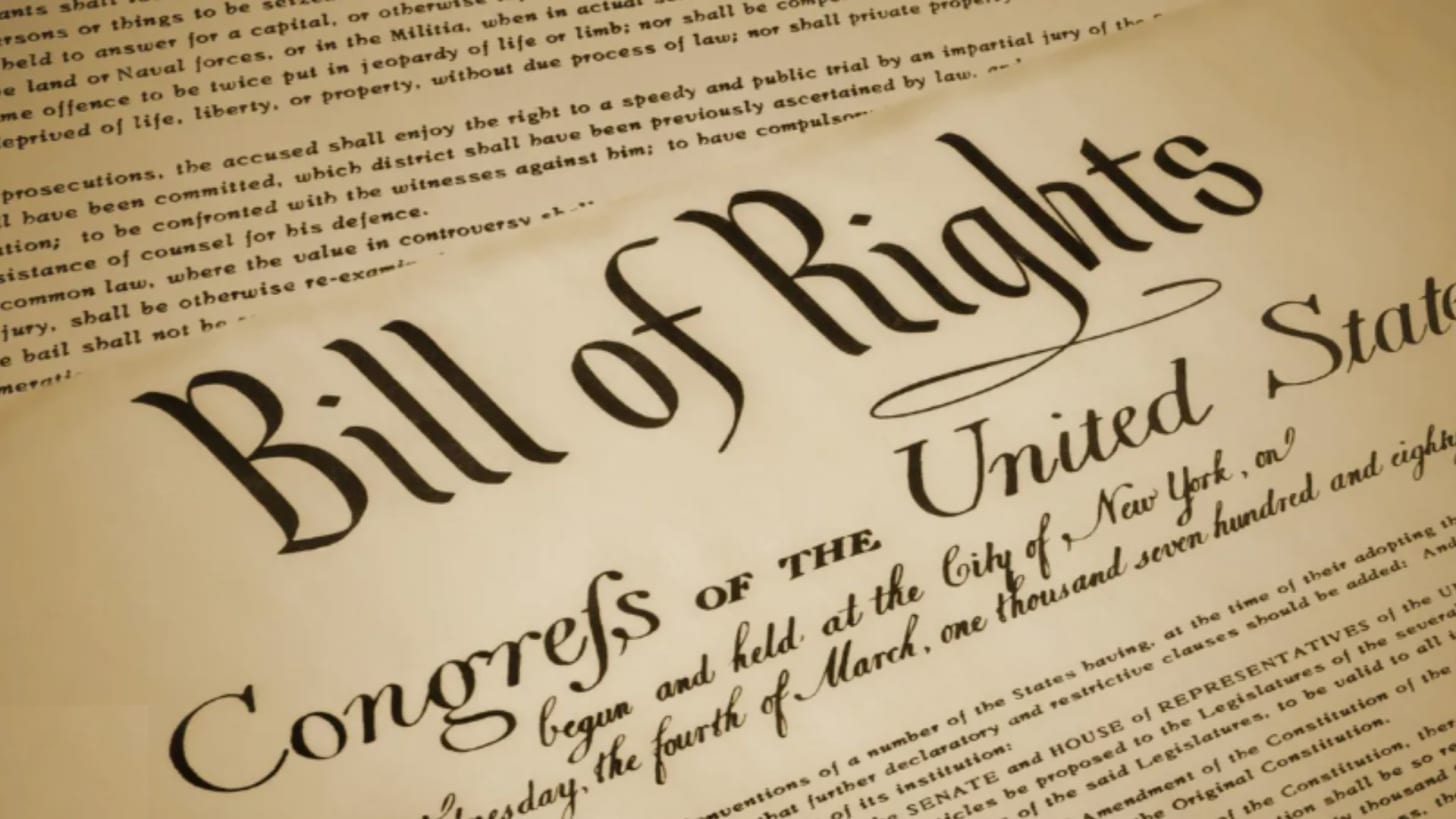 persons or things to be
held to answer for a capital, or otherwise
land or Naval forces, or in the Militia, when in actual
offence to be twice put in jeopardy of life or limb; nor shall be
deprived of life, liberty, or property, without due process of law; nor shall private
prosecutions, the accused shall enjoy the right to a speedy and public trial by an impartial jury of the
have been committed, which district shall have been previously ascertained by law,
to be confronted with the witnesses against him; to have
of counsel for his defence.
common law, where the value in controversy
jury, shall be otherwise
bail shall not be
Bill of Rights
Congreſs OF THE United
begun and held at the City of New York, on
the fourth of March, one thousand seven hundred and
of a number of the States having, at the time of their adopting
further declaratory and restrictive clauses should be added: And
of its institution:
SENATE and HOUSE of REPRESENTATIVES of the
be proposed to the Legislatures of the
of the said Legislatures, to be valid to all
Amendment of the Constitution of the
Original Constitution.
of the Constitution,
shall be so
thousand